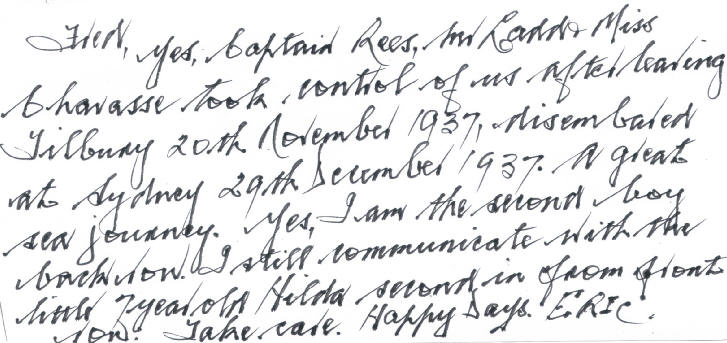 Fred, Yes, Captain Rees, Mr Ladd & Miss
Chavasse took control of us after leaving
Tilbury 20th November 1937, disembared
at Sydney 29th December 1937. A great
sea journey. Yes, I am the second boy
back row. I still communicate with the
little 7 year old Hilda second in from front
row. Take care. Happy Days. ERIC.